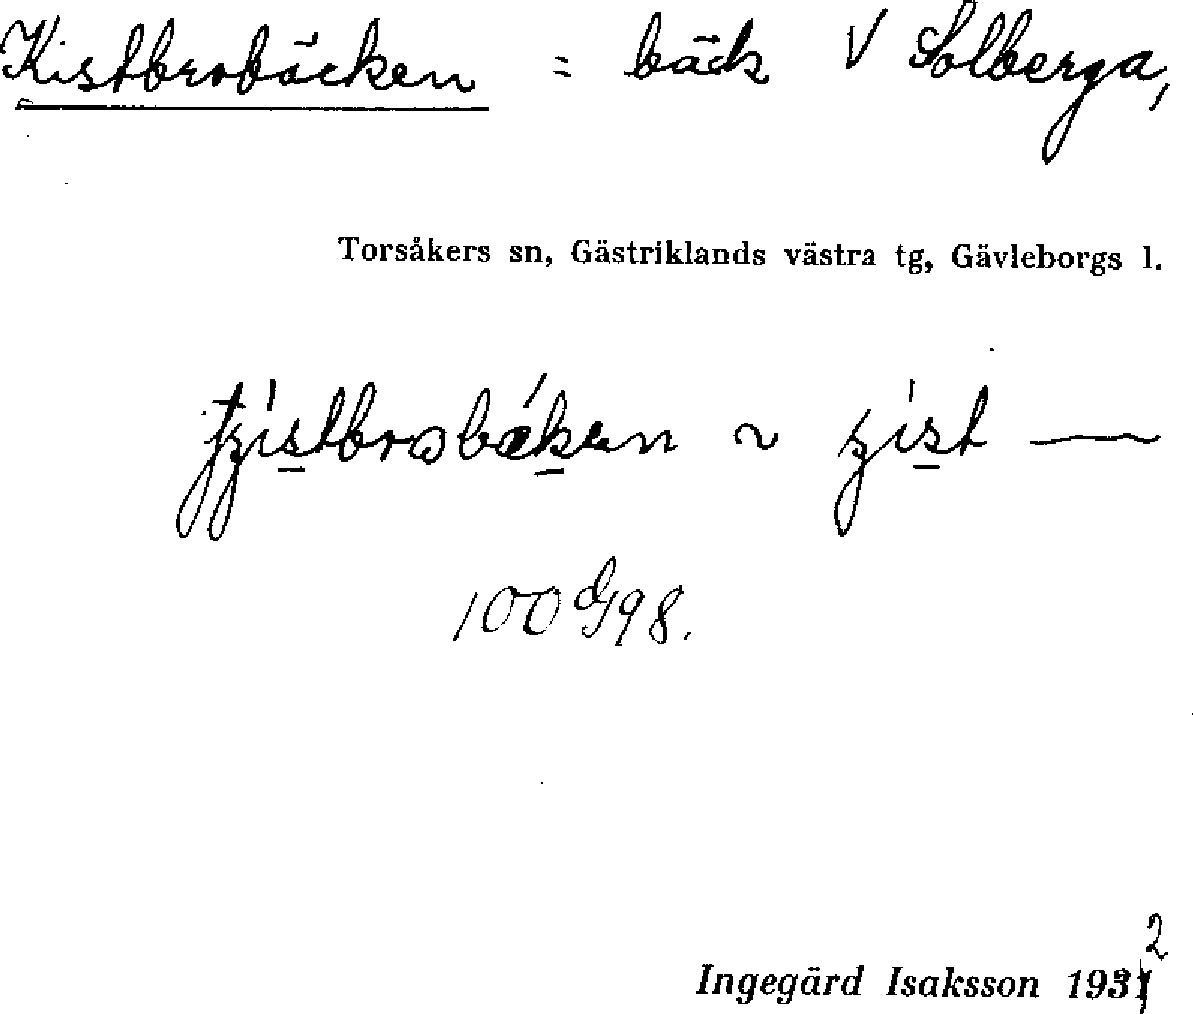 Kistbrobäcken = bäck V Solberga,
Torsåkers sn, Gästriklands västra tg, Gävleborgs l.
~
100 98.
Ingegärd Isaksson 1932